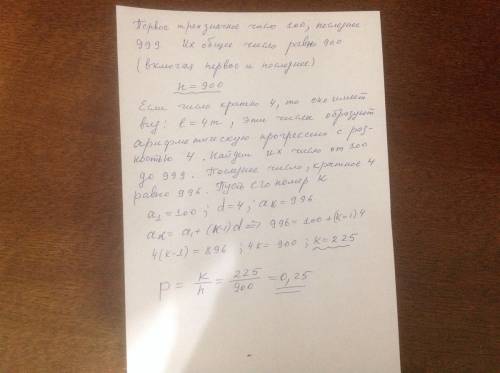 Первое трехзначное число 100, последнее
999 Их общее число равно 900
(включая первое и последнее)
n = 900
Если число кратно 4, то оно имеет
вид: l = 4m, эти числа образуют
арифметическую прогрессию с раз-
ностью 4. Найдем их число от 100
до 999. Последнее число, кратное 4
равно 996. Пусть его номер K
a₁ = 100; d = 4; aк = 996
aк = a₁ + (к-1)d ⇒ 996 = 100 + (к-1)4
4(к-1) = 896; 4к = 900; к = 225
P = K/n = 225/900 = 0,25